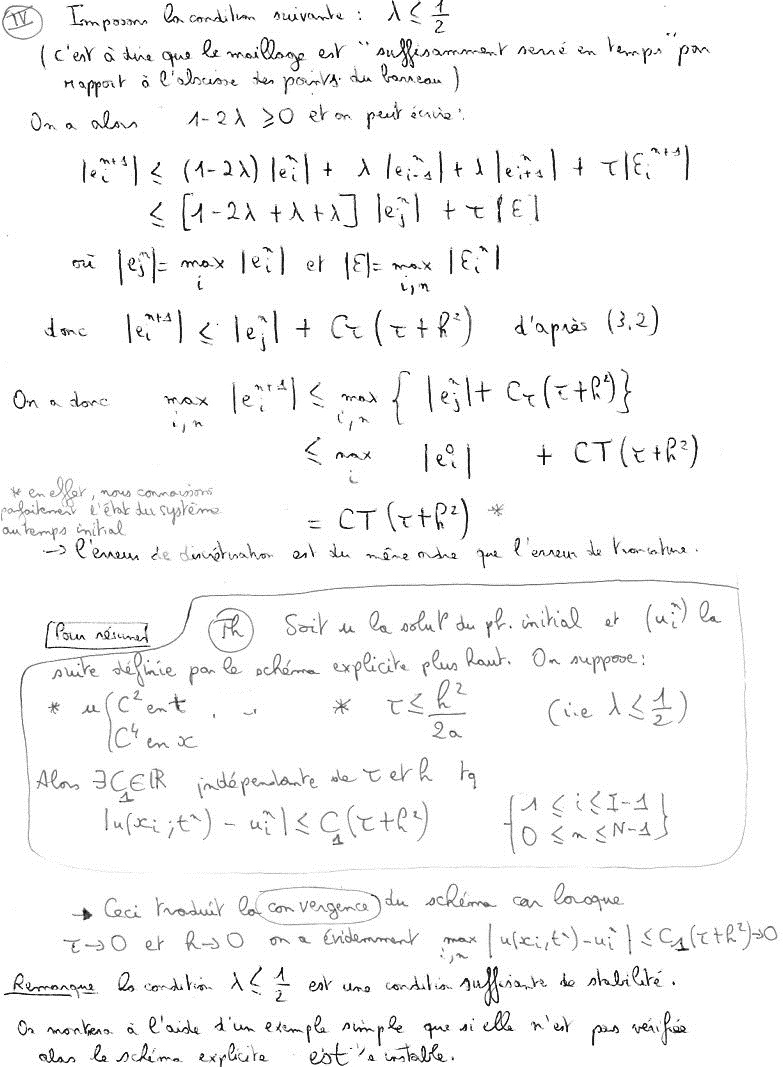 IV Imposons la condition suivante : λ ≤ 1/2
( c'est à dire que le maillage est "suffisamment serré en temps" par
rapport à l'abscisse des points du barreau )
On a alors 1-2λ ≥ 0 et on peut écrire :
|e_i^{n+1}| ≤ (1-2λ) |e_i^n| + λ |e_{i-1}^n| + λ |e_{i+1}^n| + τ |Ɛ_i^{n+1}|
≤ [1-2λ+λ+λ] |e_j^n| + τ |Ɛ|
où |e_j^n| = max_i |e_i^n| et |Ɛ| = max_{i,n} |Ɛ_i^n|
donc |e_i^{n+1}| ≤ |e_j^n| + Cτ (τ+h²) d'après (3,2)
On a donc max_{i,n} |e_i^{n+1}| ≤ max_{i,n} { |e_j^n| + Cτ (τ+h²) }
≤ max_i |e_i^0| + CT (τ+h²)
= CT (τ+h²) *
* en effet, nous connaissons
parfaitement l'état du système
au temps initial
→ l'erreur de discrétisation est du même ordre que l'erreur de troncature.
Pour résumer
Th Soit u la solut° du pb. initial et (u_i^n) la
suite définie par le schéma explicite plus haut. On suppose :
* u { C² en t, C⁴ en x * τ ≤ h²/2a (i.e λ ≤ 1/2)
Alors ∃ C_1 ∈ ℝ indépendante de τ et h tq
|u(x_i ; t^n) - u_i^n| ≤ C_1 (τ+h²) { 1 ≤ i ≤ I-1
0 ≤ n ≤ N-1 }
→ Ceci traduit la convergence du schéma car lorsque
τ→0 et h→0 on a évidemment max_{i,n} |u(x_i, t^n) - u_i^n| ≤ C_1 (τ+h²) → 0
Remarque la condition λ ≤ 1/2 est une condition suffisante de stabilité.
On montrera à l'aide d'un exemple simple que si elle n'est pas vérifiée
alors le schéma explicite est instable.